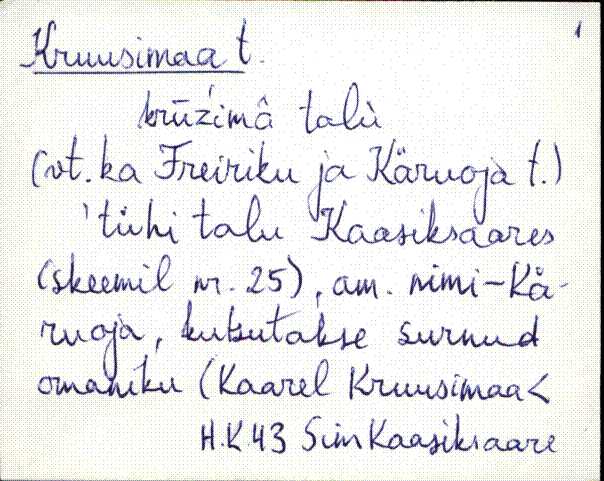 1
Kruusimaa t.
krūz'imā̂ talù
(vt. ka Freiriku ja Käruoja t.)
'tühi talu Kaasiksaares
(skeemil nr. 25), am. nimi - Kä-
ruoja, kutsutakse surnud
omaniku (Kaarel Kruusimaa<
H.K 43 Sim Kaasiksaare